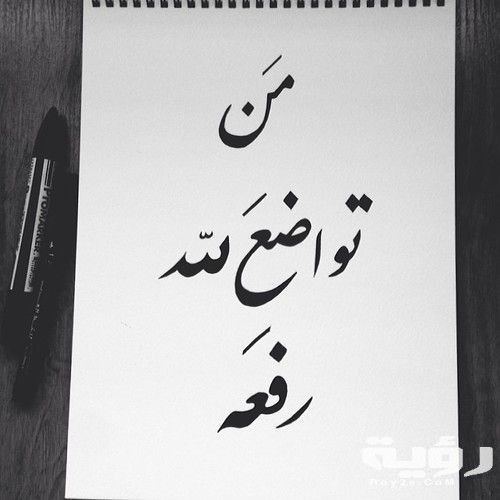 مَن
تواضعَ لله
رفعَه
رؤية
Roy2a.CoM